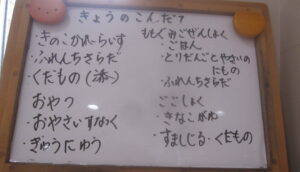 きょうのこんだて
・きのこかれーらいす
・ふれんちさらだ
・くだもの(添)
おやつ
・おやさいすなっく
・ぎゅうにゅう
ももぐみごぜんしょく
・ごはん
・とりだんごとやさいの
にもの
・ふれんちさらだ
ごごしょく
・きなこがゆ
・すましじる・くだもの